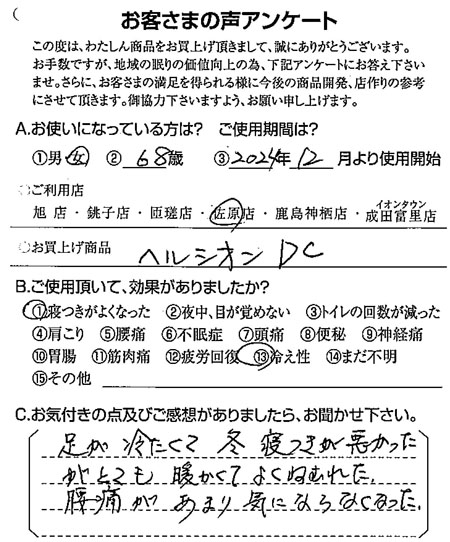 お客さまの声アンケート
この度は、わたしん商品をお買上げ頂きまして、誠にありがとうございます。
お手数ですが、地域の眠りの価値向上の為、下記アンケートにお答え下さい
ませ。さらに、お客さまの満足を得られる様に今後の商品開発、店作りの参考
にさせて頂きます。御協力下さいますよう、お願い申し上げます。
A.お使いになっている方は? ご使用期間は?
①男 女 ② 68歳 ③2024年12月より使用開始
○ご利用店
旭店・銚子店・匝瑳店・佐原店・鹿島神栖店・成田富里店
イオンタウン
○お買上げ商品 ヘルシオン DC
B.ご使用頂いて、効果がありましたか?
①寝つきがよくなった ②夜中、目が覚めない ③トイレの回数が減った
④肩こり ⑤腰痛 ⑥不眠症 ⑦頭痛 ⑧便秘 ⑨神経痛
⑩胃腸 ⑪筋肉痛 ⑫疲労回復 ⑬冷え性 ⑭まだ不明
⑮その他
C.お気付きの点及びご感想がありましたら、お聞かせ下さい。
足が冷たくて冬寝つきが悪かった
がとても暖かくてよくねむれた。
腰痛があまり気にならなくなった。